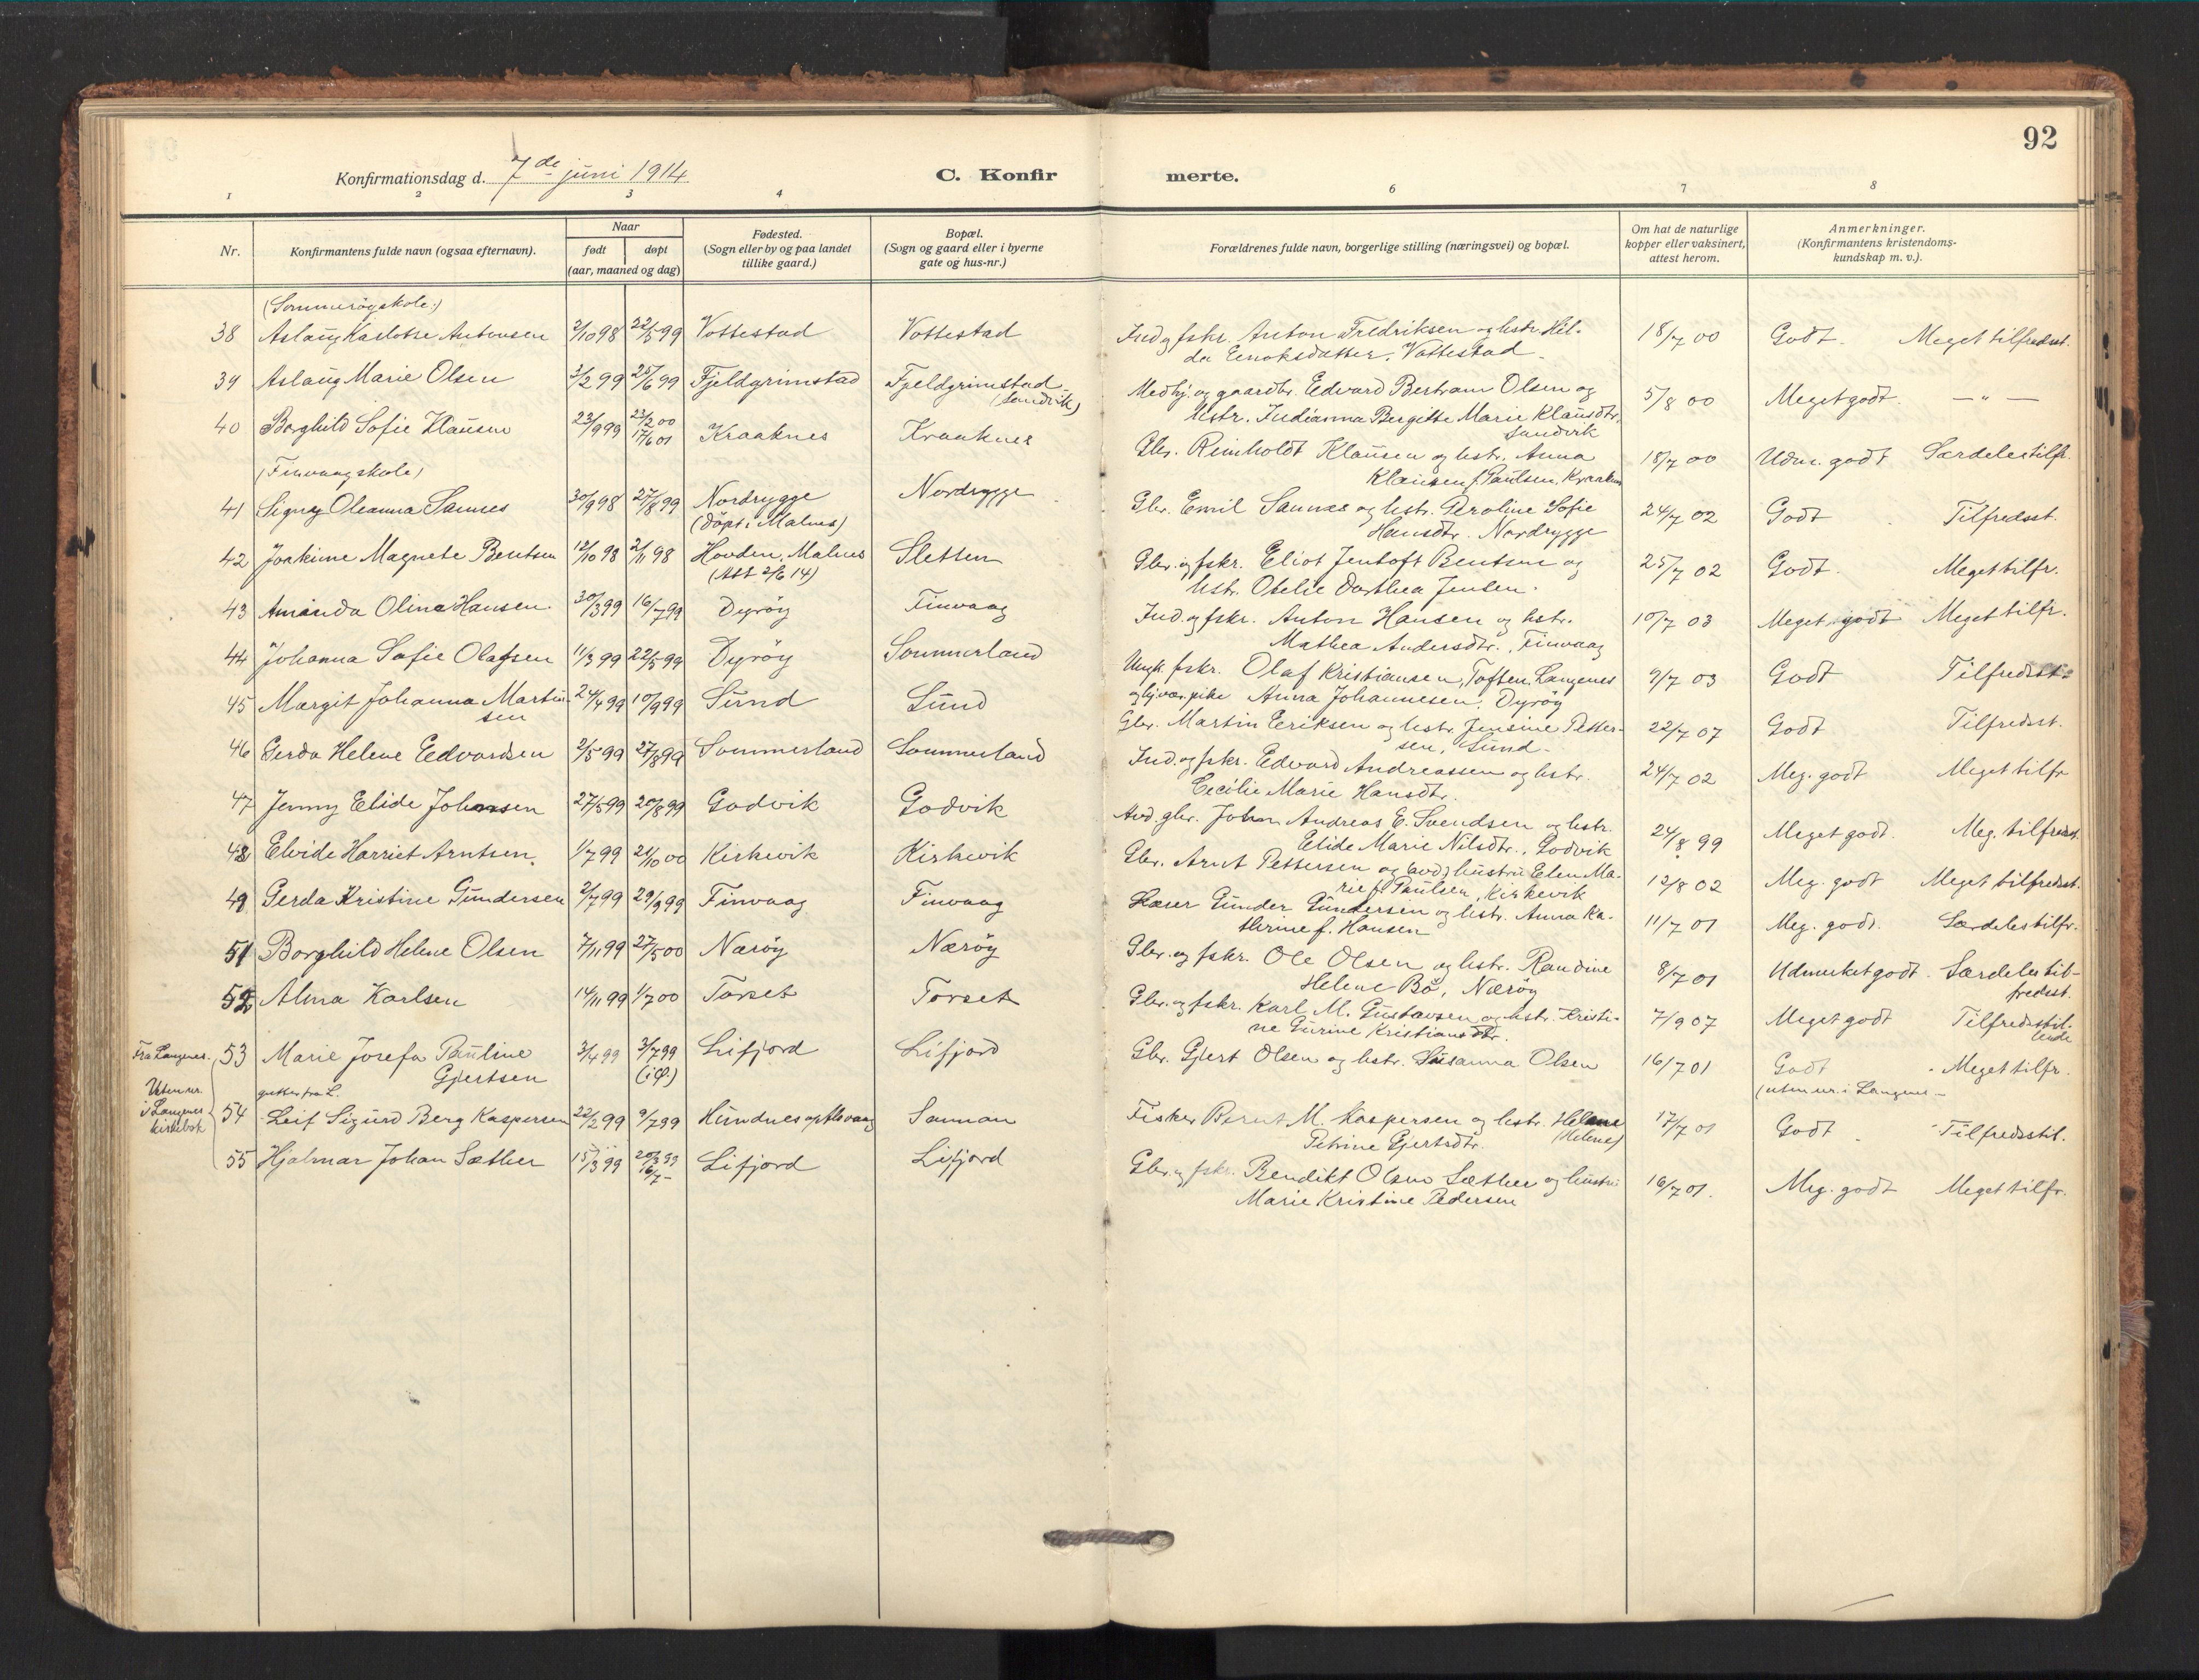 92
Konfirmationsdag d. 7de juni 1914
C. Konfirmerte.
1 2 3 4 6 7 8
Nr. Konfirmantens fulde navn (ogsaa efternavn). Naar født døpt (aar, maaned og dag) Fødested. (Sogn eller by og paa landet tillike gaard.) Bopæl. (Sogn og gaard eller i byerne gate og hus-nr.) Forældrenes fulde navn, borgerlige stilling (næringsvei) og bopæl. Om hat de naturlige kopper eller vaksinert, attest herom. Anmerkninger. (Konfirmantens kristendoms-kundskap m. v.).
(Sommerøyskole:)
38 Aslaug Karlotte Antonsen 2/10 98 22/5 99 Vottestad Vottestad Ind. og fskr. Anton Fredriksen og hstr. Hil- 18/7 00 Godt. Meget tilfredsst.
da Enoksdatter. Vottestad
39 Aslaug Marie Olsen 3/2 99 25/6 99 Fjeldgrimstad Fjeldgrimstad (Sandvik) Medhj. og gaardbr. Edvard Bertram Olsen og 5/8 00 Meget godt. — " —
hstr. Indianna Bergitte Marie Klausdtr. Sandvik
40 Borghild Sofie Klausen 23/9 99 23/2 00 17/6 01 Kraaknes Kraaknes Gbr. Reinholdt Klausen og hstr. Anna 18/7 00 Udm. godt Særdeles tilfr.
Klausen f. Paulsen, Kraaknes
(Finvaag skole)
41 Signy Oleanna Sannes 30/9 98 27/8 99 Nordrygge (Døpt i Malnes) Nordrygge Gbr. Emil Sannes og hstr. Beroline Sofie 24/7 02 Godt Tilfredsst.
Hansdtr. Nordrygge
42 Joakime Magnete Bentsen 12/10 98 2/11 98 Hovden, Malnes (Att 2/6 14) Sletten Gbr. og fskr. Eliot Jentoft Bentsen og 25/7 02 Godt. Meget tilfr.
hstr. Otelie Dorthea Jensen.
43 Amanda Olina Hansen 30/3 99 16/7 99 Dyrøy Finvaag Ind. og fskr. Anton Hansen og hstr. 10/7 03 Meget godt Meget tilfr.
Mathea Andersdtr., Finvaag
44 Johanna Sofie Olafsen 11/3 99 22/5 99 Dyrøy Sommerland Ungk. fskr. Olaf Kristiansen, Toften, Langenes 9/7 03 Godt Tilfredsst.
og hjvær. pike Anna Johannesen. Dyrøy
45 Margit Johanna Martin- sen 24/4 99 10/9 99 Sund Sund Gbr. Martin Eriksen og hstr. Jensine Petter- 22/7 07 Godt Tilfredsst.
sen, Sund
46 Gerda Helene Edvardsen 2/5 99 27/8 99 Sommerland Sommerland Ind. og fskr. Edvard Andreassen og hstr. 24/7 02 Meg. godt Meget tilfr
Cecilie Marie Hansdtr.
47 Jenny Elide Johansen 27/5 99 20/8 99 Godvik Godvik Avd. gbr. Johan Andreas E. Svendsen og hstr. 24/8 99 Meget godt. Meg. tilfredsst.
Elide Marie Nilsdtr., Godvik
48 Elvide Harriet Arntsen. 1/7 99 21/10 00 Kirkevik Kirkevik Gbr. Arnt Pettersen og (avd.) hustru Elen Ma- 12/8 02 Meg. godt Meget tilfredsst.
rie f. Paulsen, Kirkevik
49 Gerda Kristine Gundersen 2/7 99 29/9 99 Finvaag Finvaag Lærer Gunder Gundersen og hstr. Anna Ka- 11/7 01 Meg. godt. Særdeles tilfr.
thrine f. Hansen
51 Borghild Helene Olsen 7/11 99 27/5 00 Nærøy Nærøy Gbr. og fskr. Ole Olsen og hstr. Randine 8/7 01 Udmerket godt. Særdeles til- fredsst.
Helene Bø, Nærøy
52 Alma Karlsen 14/11 99 1/7 00 Torset Torset Gbr. og fskr. Karl M. Gustavsen og hstr. Kristi- 7/9 07 Meget godt Tilfredsstil- lende
ne Gurine Kristiansdtr.
Fra Langenes. 53 Marie Josefa Pauline Gjertsen 3/4 99 3/7 99 (i Ø.) Lifjord Lifjord Gbr. Gjert Olsen og hstr. Susanna Olsen 16/7 01 Godt (uten nr. i Langenes Meget tilfr.
Uten nr. i Langenes kirkebok
gutter fra L.
54 Leif Sigurd Berg Kaspersen 22/2 99 9/7 99 Hundnes Sannan Fisker Bernt M. Kaspersen og hstr. Helana (Helene) 17/7 01 Godt Tilfredsstil.
Petrine Gjertsdtr.
55 Hjalmar Johan Sæther 15/3 99 20/3 99 16/7 – Lifjord Lifjord Gbr. og fskr. Bendikt Olsen Sæther og hustru 16/7 01. Meg. godt Meget tilfr.
Marie Kristine Pedersen